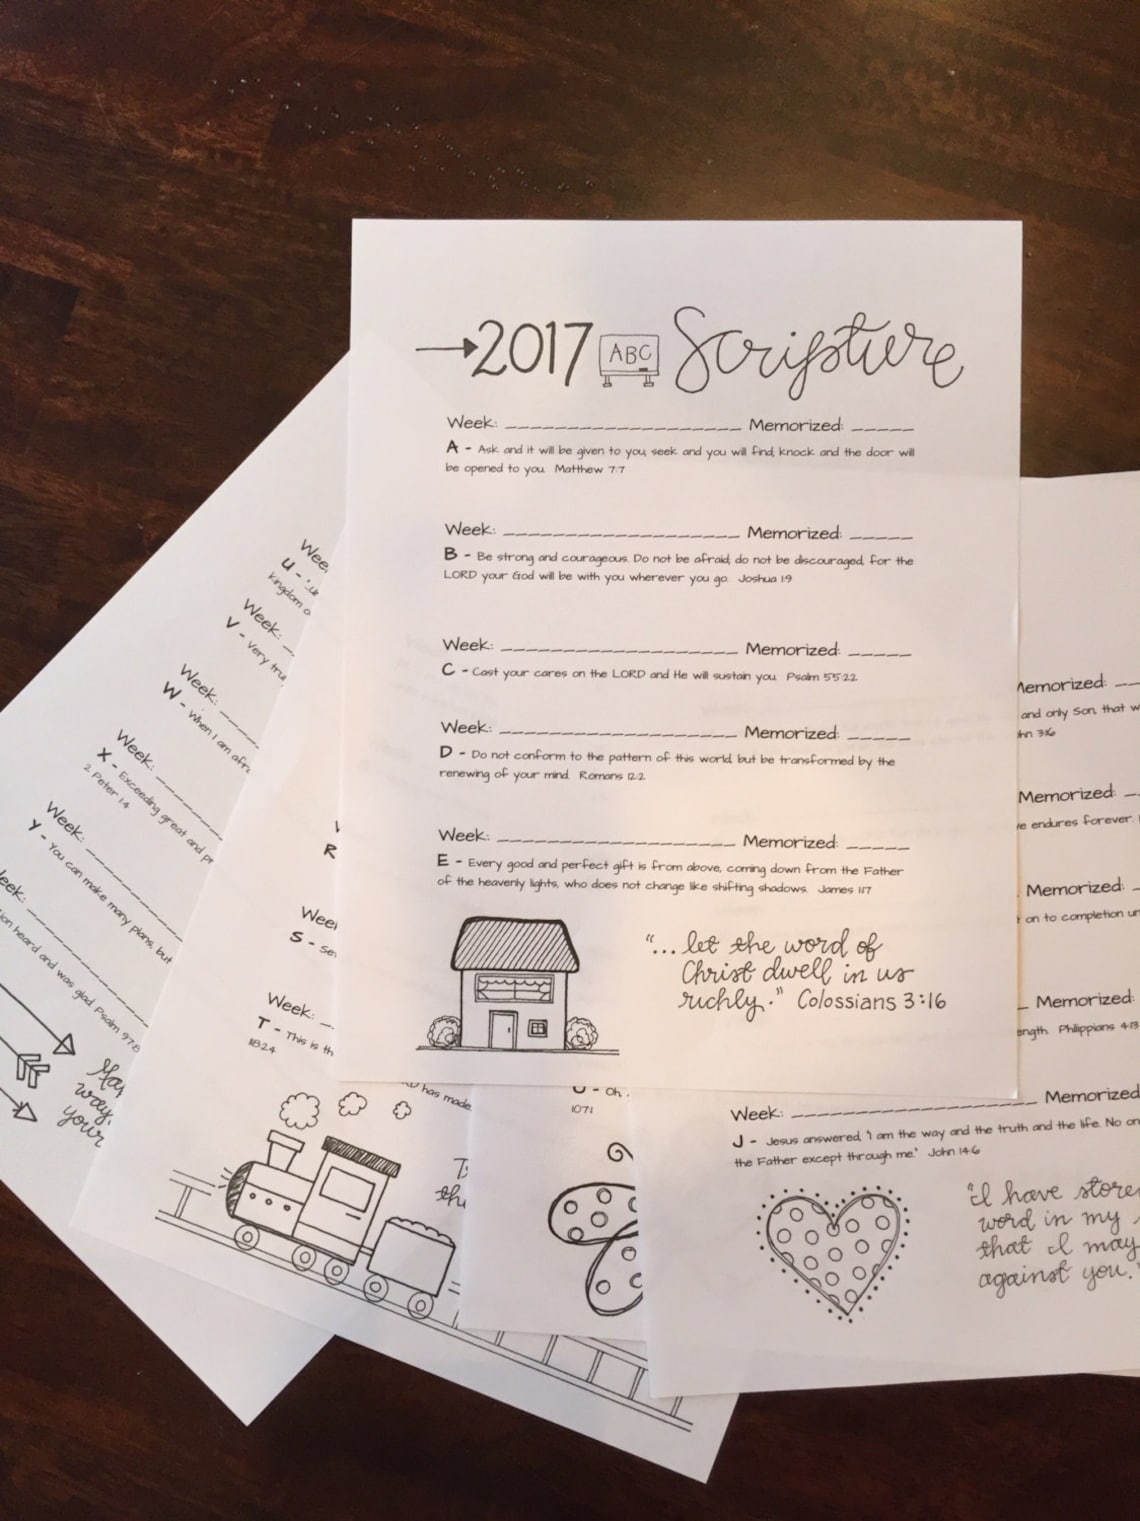 2017 ABC Scripture
Week: Memorized:
A - Ask and it will be given to you, seek and you will find, knock and the door will
be opened to you. Matthew 7:7
Week: Memorized:
B - Be strong and courageous. Do not be afraid, do not be discouraged, for the
LORD your God will be with you wherever you go. Joshua 1:9
Week: Memorized:
C - Cast your cares on the LORD and He will sustain you. Psalm 55:22
Week: Memorized:
D - Do not conform to the pattern of this world, but be transformed by the
renewing of your mind. Romans 12:2
Week: Memorized:
E - Every good and perfect gift is from above, coming down from the Father
of the heavenly lights, who does not change like shifting shadows. James 1:17
"... let the word of
Christ dwell in us
richly." Colossians 3:16
U -
kingdom
Week:
V - Very
Week:
W - When I am
Week:
X - Exceeding great and
2 Peter 1:4
Week:
Y - You can make many plans, but
heard and was glad. Psalm 97:8
way
your
R
S -
Week:
T - This is
118:24
has made
O - Oh
107:1
Memorized:
and only Son, that
3:16
Memorized:
endures forever.
Memorized:
on to completion
Memorized:
Philippians 4:13
Week: Memorized
J - Jesus answered, "I am the way and the truth and the life. No
the Father except through me." John 14:6
"I have
word in my
that I may
against you."